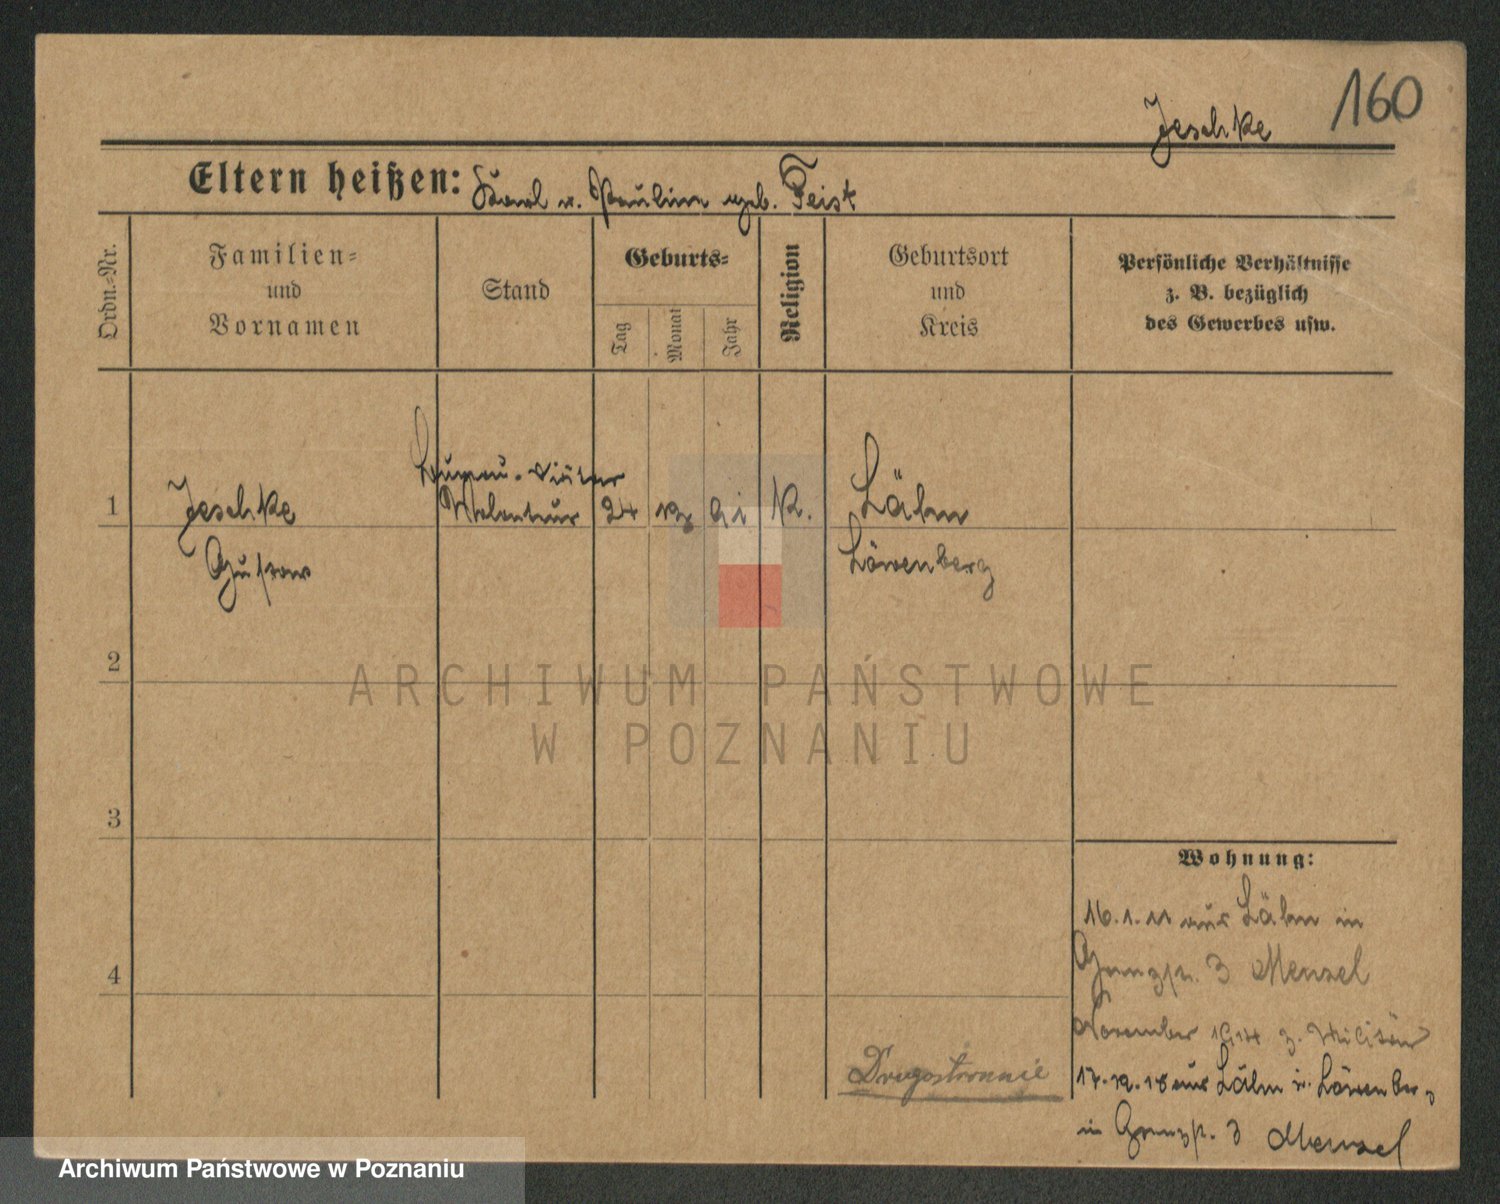 160
Jeschke
Eltern heißen: Karl u. Paulin geb. Feist
Ordn.-Nr.
Familien-
und
Vornamen
Stand
Geburts-
Tag
Monat
Jahr
Religion
Geburtsort
und
Kreis
Persönliche Verhältnisse
z. B. bezüglich
des Gewerbes usw.
1
Jeschke
Gustav
24
K.
Lähn
Löwenberg
2
ARCHIWUM PAŃSTWOWE
W POZNANIU
3
4
Wohnung:
16.1.11 aus Lähn in
3 Menzel
November 1914 z. Militär
17.12.18 aus Lähn i. Löwenberg
in 3 Menzel
Drugostronnie
Archiwum Państwowe w Poznaniu